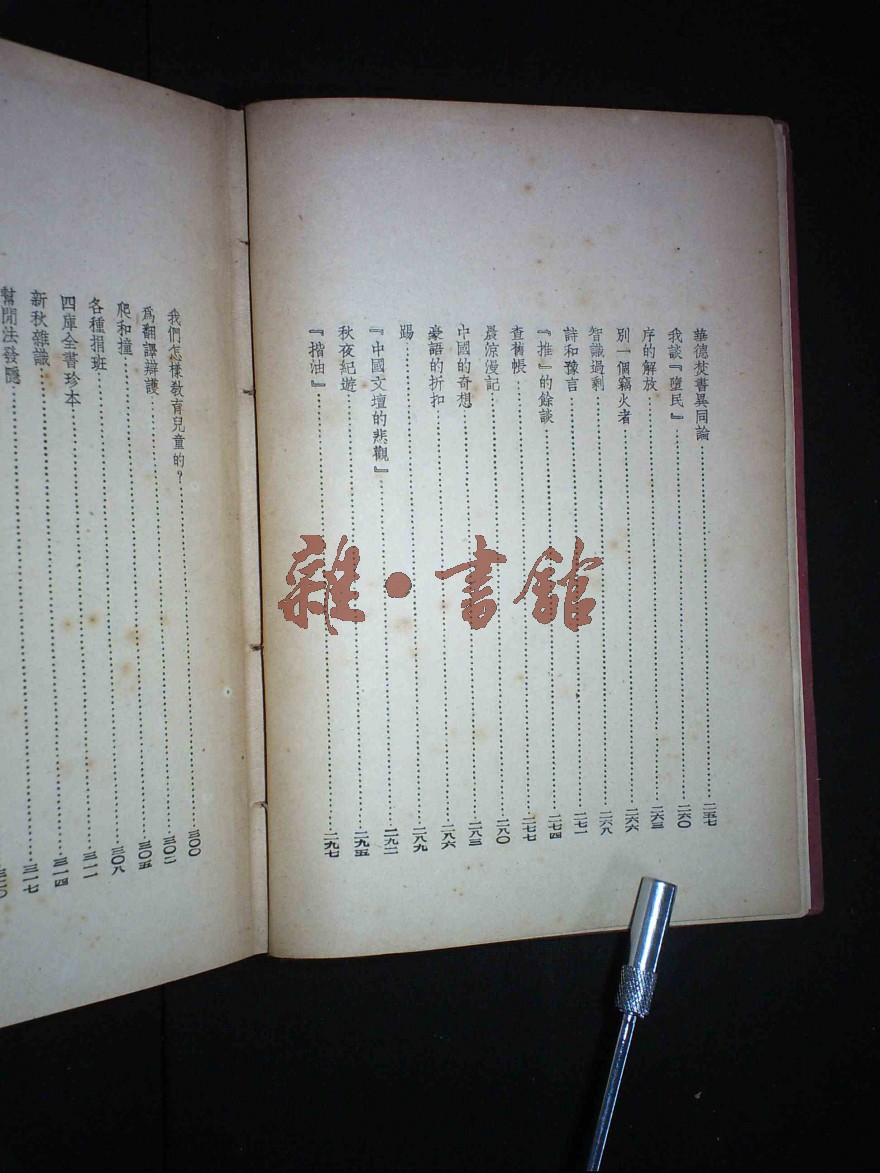 華德焚書異同論……二五七
我談『墮民』……二六〇
序的解放……二六三
別一個竊火者……二六六
智識過剩……二六八
詩和豫言……二七一
『推』的餘談……二七四
查舊帳……二七七
晨涼漫記……二八〇
中國的奇想……二八三
豪語的折扣……二八六
踢……二八九
『中國文壇的悲觀』……二九二
秋夜紀遊……二九五
『揩油』……二九七
我們怎樣教育兒童的？……三〇〇
爲翻譯辯護……三〇二
爬和撞……三〇五
各種捐班……三〇八
四庫全書珍本……三一一
新秋雜識……三一四
幫閒法發隱……三一七
雜·書館